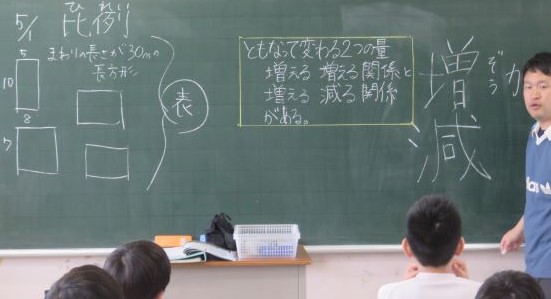 5/1
ひれい
比例
まわりの長さが30mの
長方形
5
10
8
7
表
ともなって変わる2つの量
増える 増える関係と
増える 減る関係
がある。
増
ぞう
か
減
adidas